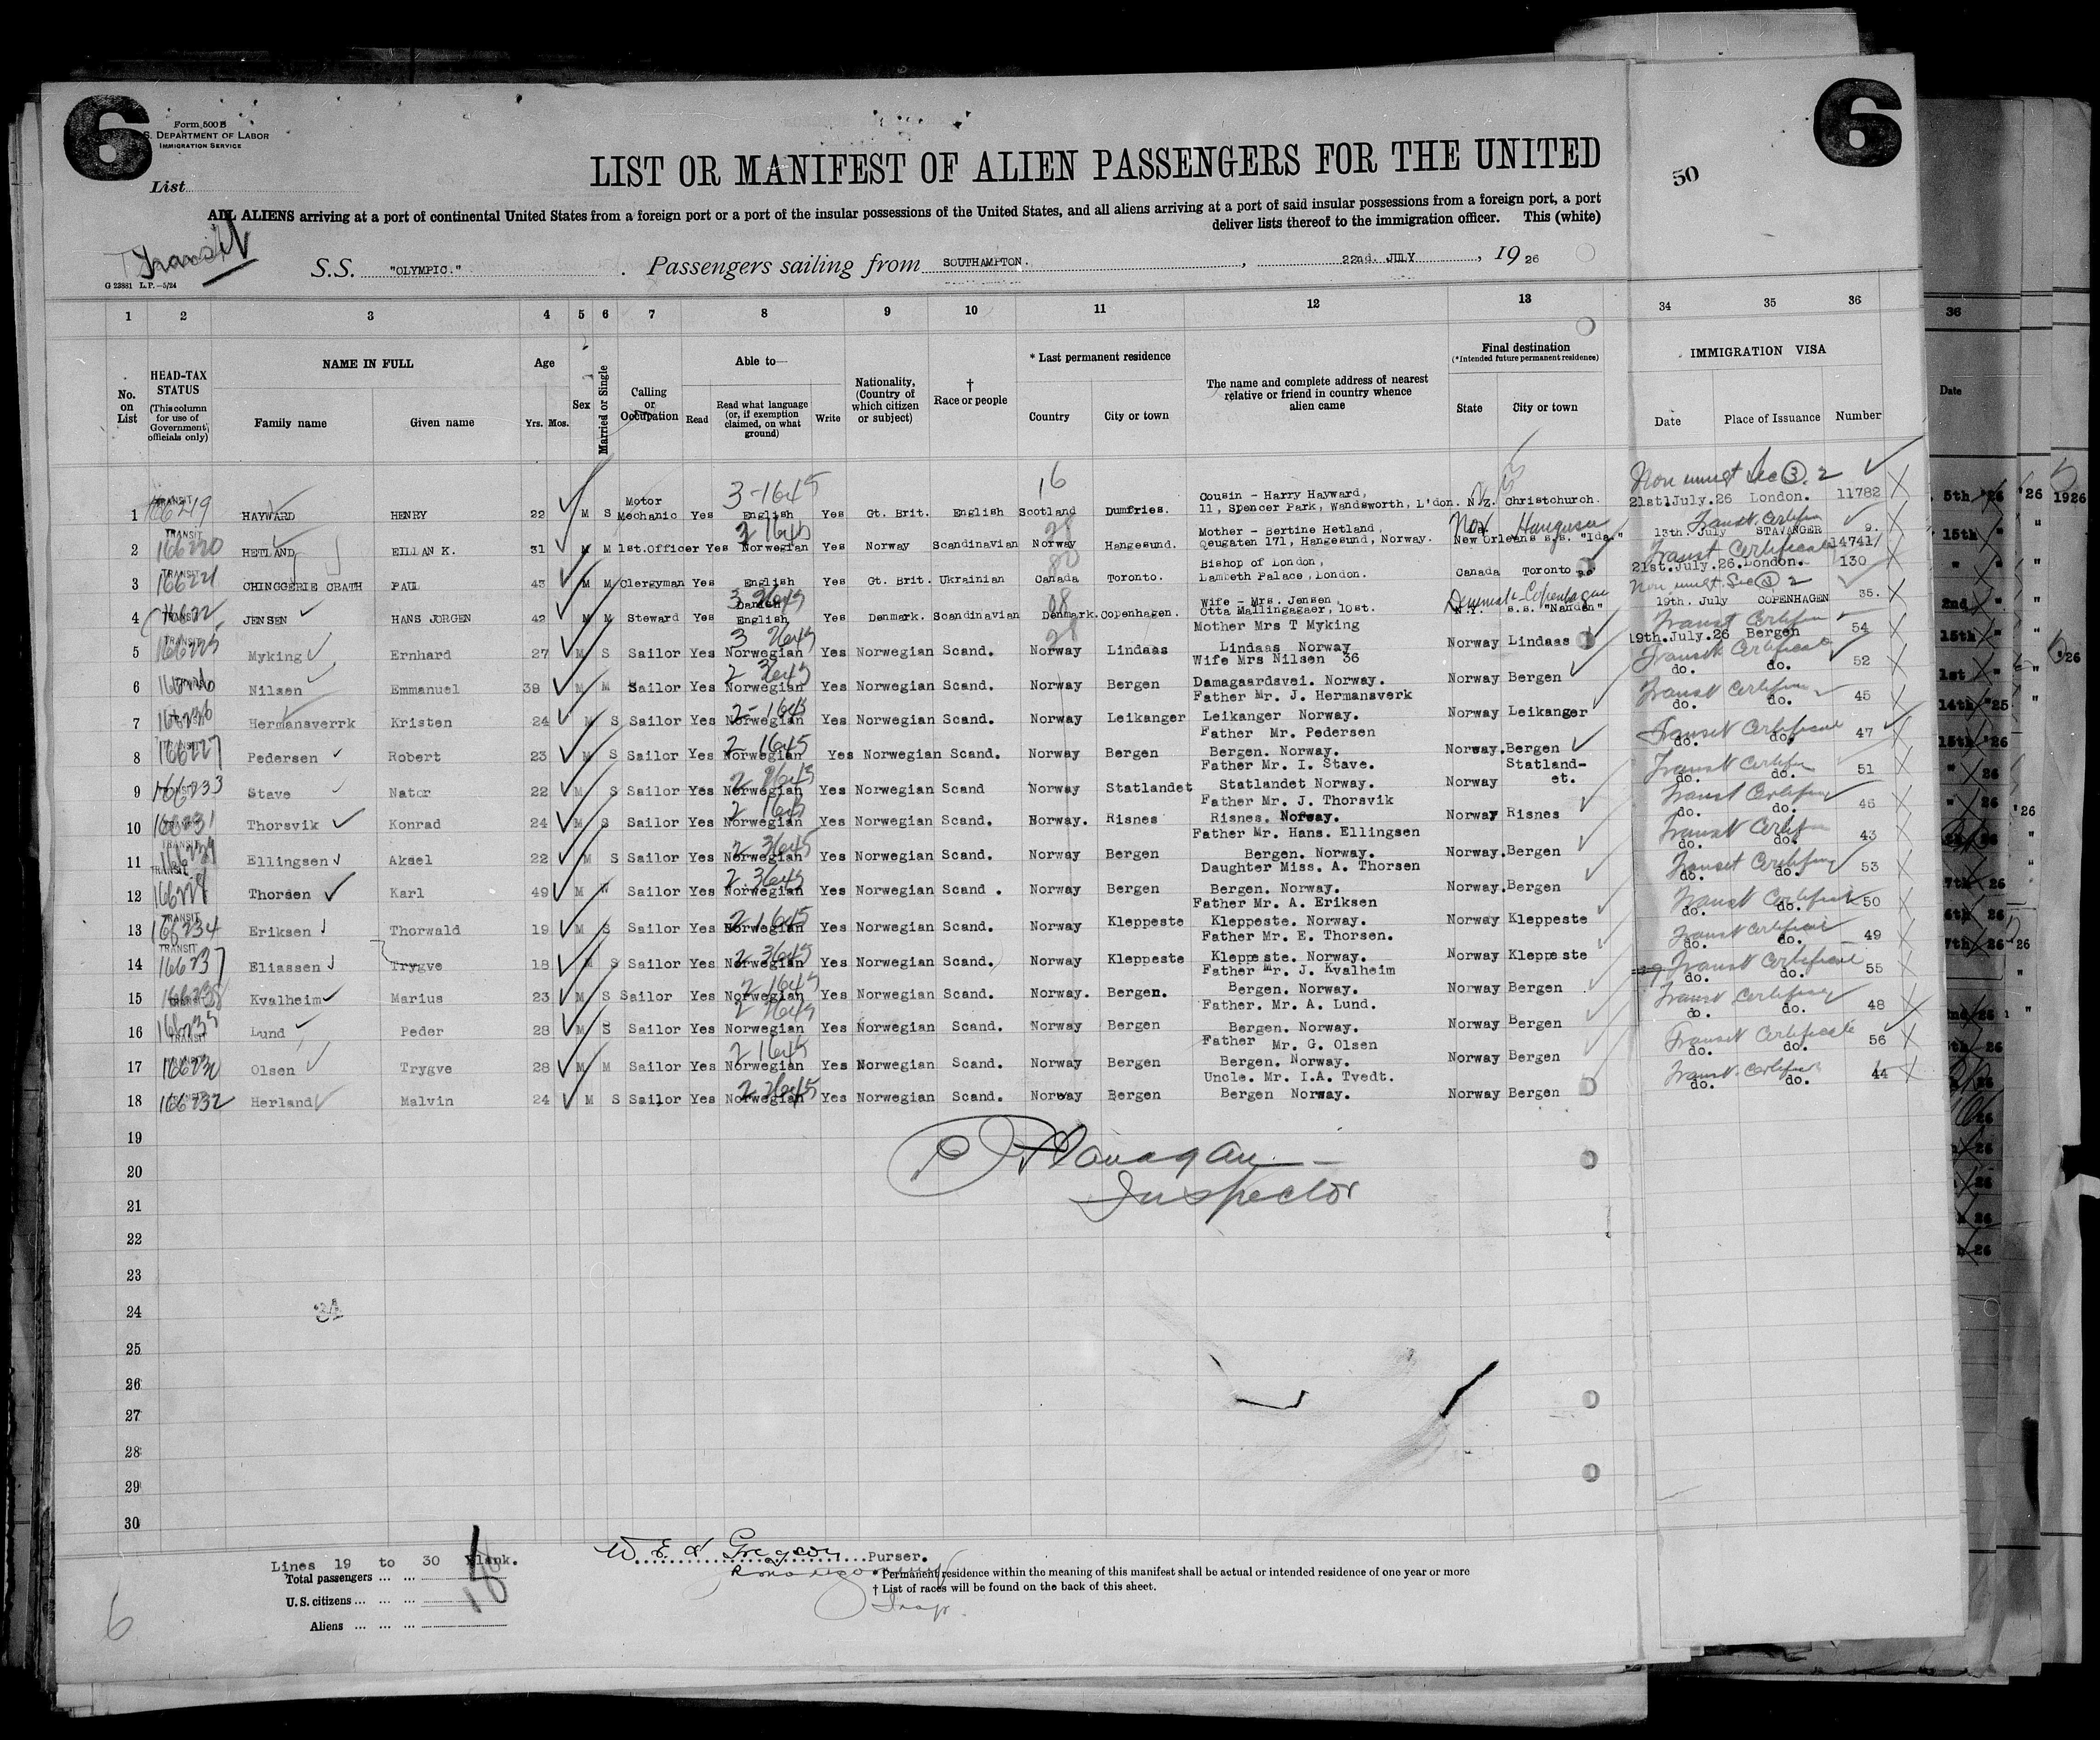 6
6
Form 500 B
S. DEPARTMENT OF LABOR
IMMIGRATION SERVICE
List
LIST OR MANIFEST OF ALIEN PASSENGERS FOR THE UNITED
50
ALL ALIENS arriving at a port of continental United States from a foreign port or a port of the insular possessions of the United States, and all aliens arriving at a port of said insular possessions from a foreign port, a port
deliver lists thereof to the immigration officer. This (white)
Transit
S.S. "OLYMPIC." Passengers sailing from SOUTHAMPTON. , 22nd. JULY , 19 26
G 23881 L.P.—5/24
1 2 3 4 5 6 7 8 9 10 11 12 13 34 35 36
No. on List
HEAD-TAX STATUS (This column for use of Government officials only)
NAME IN FULL Family name Given name
Age Yrs. Mos.
Sex
Married or Single
Calling or Occupation
Able to— Read Read what language (or, if exemption claimed, on what ground) Write
Nationality, (Country of which citizen or subject)
† Race or people
* Last permanent residence Country City or town
The name and complete address of nearest relative or friend in country whence alien came
Final destination (*Intended future permanent residence) State City or town
IMMIGRATION VISA Date Place of Issuance Number
Non immgt Sec 3. 2
3-1645 16
Cousin - Harry Hayward,
1 TRANSIT 166219 HAYWARD HENRY 22 M S Motor Mechanic Yes English Yes Gt. Brit. English Scotland Dumfries. 11, Spencer Park, Wandsworth, L'don. N.Z. Christchurch. 21st July.26 London. 11782
Mother - Bertine Hetland,
2 TRANSIT 166220 HETLAND EILLAN K. 31 M M 1st.Officer Yes Norwegian Yes Norway Scandinavian Norway Hangesund. Qeugaten 171, Hangesund, Norway. New Orleans s.s. "Ida." 13th. July STAVANGER 9.
Bishop of London,
3 TRANSIT 166221 CHINGGERIE CRATH PAUL 43 M M Clergyman Yes English Yes Gt. Brit. Ukrainian Canada Toronto. Lambeth Palace, London. Canada Toronto 21st.July.26.London. 14741/130
Wife - Mrs. Jensen,
4 JENSEN HANS JORGEN 42 M M Steward Yes Danish English Yes Denmark. Scandinavian Denmark. Copenhagen. Otta Mallingagaer, 10st. N.Y. s.s. "Nanden" 19th. July COPENHAGEN 35.
Mother Mrs T Myking
5 Myking Ernhard 27 M S Sailor Yes Norwegian Yes Norwegian Scand. Norway Lindaas Lindaas Norway Norway Lindaas 19th.July.26 Bergen 54
Wife Mrs Nilsen 36
6 Nilsen Emmanuel 39 M M Sailor Yes Norwegian Yes Norwegian Scand. Norway Bergen Damagaardsvei. Norway. Norway Bergen do. do. 52
Father Mr. J. Hermansverk
7 Hermansverrk Kristen 24 M S Sailor Yes Norwegian Yes Norwegian Scand. Norway Leikanger Leikanger Norway. Norway Leikanger do. do. 45
Father Mr. Pedersen
8 166227 Pedersen Robert 23 M S Sailor Yes Norwegian Yes Norwegian Scand. Norway Bergen Bergen. Norway. Norway. Bergen do. do. 47
Father Mr. I. Stave. Statland-
9 166233 Stave Nator 22 M S Sailor Yes Norwegian Yes Norwegian Scand Norway Statlandet Statlandet Norway. Norway et. do. do. 51
Father Mr. J. Thorsvik
10 166231 Thorsvik Konrad 24 M S Sailor Yes Norwegian Yes Norwegian Scand. Norway. Risnes Risnes. Norway. Norway Risnes do. do. 46
Father Mr. Hans. Ellingsen
11 Ellingsen Aksel 22 M S Sailor Yes Norwegian Yes Norwegian Scand. Norway Bergen Bergen. Norway. Norway. Bergen do. do. 43
Daughter Miss. A. Thorsen
12 TRANSIT Thorsen Karl 49 M W Sailor Yes Norwegian Yes Norwegian Scand . Norway Bergen Bergen. Norway. Norway. Bergen do. do. 53
Father Mr. A. Eriksen
13 TRANSIT 166234 Eriksen Thorwald 19 M S Sailor Yes Norwegian Yes Norwegian Scand. Norway Kleppeste Kleppeste. Norway. Norway Kleppeste do. do. 50
Father Mr. E. Thorsen.
14 TRANSIT 166237 Eliassen Trygve 18 M S Sailor Yes Norwegian Yes Norwegian Scand. Norway Kleppeste Kleppeste. Norway. Norway Kleppeste do. do. 49
Father Mr. J. Kvalheim
15 Kvalheim Marius 23 M S Sailor Yes Norwegian Yes Norwegian Scand. Norway. Bergen. Bergen. Norway. Norway Bergen do. do. 55
Father. Mr. A. Lund.
16 TRANSIT Lund Peder 28 M S Sailor Yes Norwegian Yes Norwegian Scand. Norway Bergen Bergen. Norway. Norway Bergen do. do. 48
Father Mr. G. Olsen
17 166230 Olsen Trygve 28 M M Sailor Yes Norwegian Yes Norwegian Scand. Norway Bergen Bergen. Norway. Norway Bergen do. do. 56
Uncle. Mr. I.A. Tvedt.
18 166232 Herland Malvin 24 M S Sailor Yes Norwegian Yes Norwegian Scand. Norway Bergen Bergen Norway. Norway Bergen do. do. 44
19
20
Inspector
21
22
23
24
25
26
27
28
29
30
Lines 19 to 30 Blank.
Purser.
Total passengers ... ... 18
* Permanent residence within the meaning of this manifest shall be actual or intended residence of one year or more
† List of races will be found on the back of this sheet.
U.S. citizens ... ... ...
Insp.
Aliens ... ... ...
6